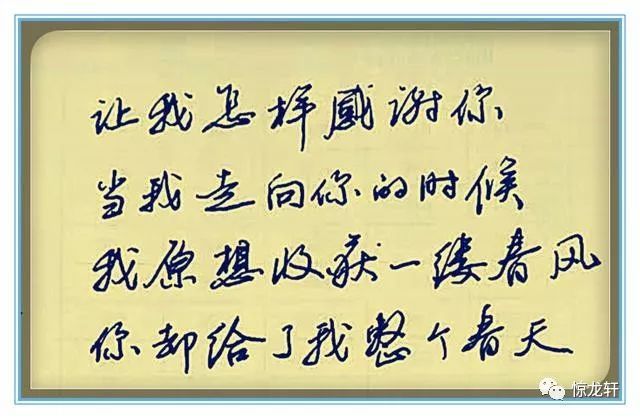 让我怎样感谢你
当我走向你的时候
我原想收获一缕春风
你却给了我整个春天
惊龙轩